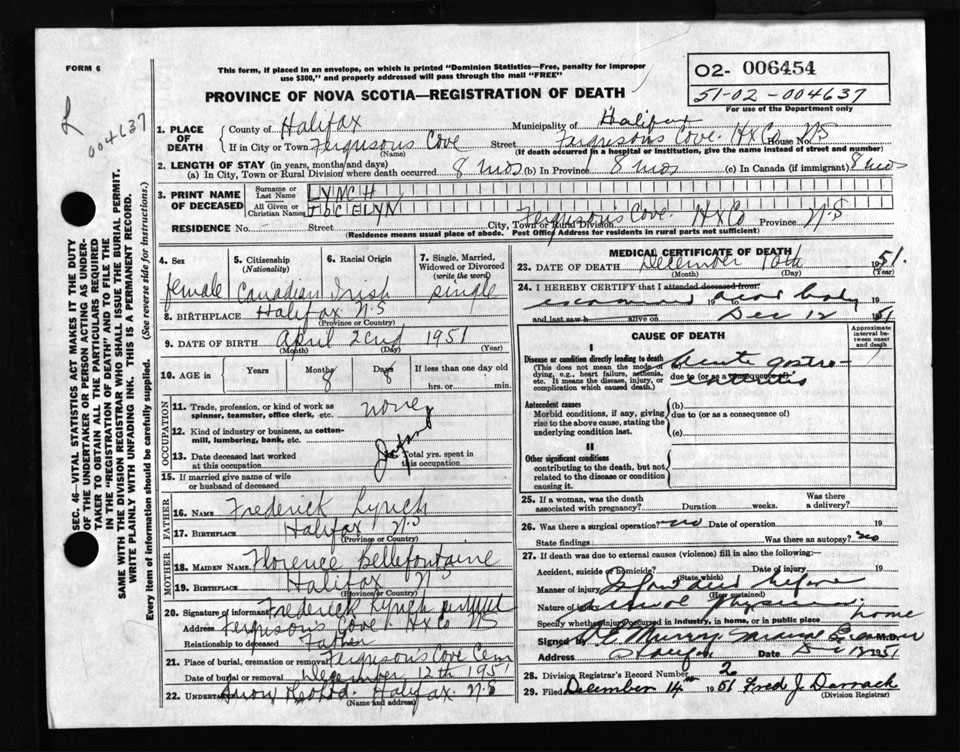 FORM 6
This form, if placed in an envelope, on which is printed "Dominion Statistics—Free, penalty for improper
use $300," and properly addressed will pass through the mail "FREE"
PROVINCE OF NOVA SCOTIA—REGISTRATION OF DEATH
02- 006454
51-02-004637
For use of the Department only
004637
SEC. 46—VITAL STATISTICS ACT MAKES IT THE DUTY
OF THE UNDERTAKER OR PERSON ACTING AS UNDER-
TAKER TO OBTAIN ALL THE PARTICULARS REQUIRED
IN THE "REGISTRATION OF DEATH" AND TO FILE THE
SAME WITH THE DIVISION REGISTRAR WHO SHALL ISSUE THE BURIAL PERMIT.
WRITE PLAINLY WITH UNFADING INK. THIS IS A PERMANENT RECORD.
Every item of information should be carefully supplied. (See reverse side for instructions.)
1. PLACE OF DEATH County of Halifax Municipality of Halifax
If in City or Town Ferguson's Cove (Name) Street Ferguson's Cove. Hx Co NS House No.
(If death occurred in a hospital or institution, give the name instead of street and number)
2. LENGTH OF STAY (in years, months and days)
(a) In City, Town or Rural Division where death occurred 8 mos (b) In Province 8 mos (c) In Canada (if immigrant) 8 mos
3. PRINT NAME OF DECEASED Surname or Last Name LYNCH
All Given or Christian Names JOCELYN
RESIDENCE No. Street City, Town or Rural Division Ferguson's Cove. Hx Co Province N.S
(Residence means usual place of abode. Post Office Address for residents in rural parts not sufficient)
4. Sex female
5. Citizenship (Nationality) Canadian
6. Racial Origin Irish
7. Single, Married, Widowed or Divorced (write the word) single
8. BIRTHPLACE Halifax N.S
(Province or Country)
9. DATE OF BIRTH April 22nd 1951
(Month) (Day) (Year)
10. AGE in Years Months 8 Days 8 If less than one day old
hrs. or min.
OCCUPATION
11. Trade, profession, or kind of work as
spinner, teamster, office clerk, etc. none
12. Kind of industry or business, as cotton-
mill, lumbering, bank, etc. Infant
13. Date deceased last worked
at this occupation Total yrs. spent in
this occupation
15. If married give name of wife
or husband of deceased
FATHER
16. NAME Frederick Lynch
17. BIRTHPLACE Halifax N.S
(Province or Country)
MOTHER
18. MAIDEN NAME Florence Bellefontaine
19. BIRTHPLACE Halifax N.S
(Province or Country)
20. Signature of informant Frederick Lynch
Address Ferguson's Cove. Hx Co NS
Relationship to deceased Father
21. Place of burial, cremation or removal Ferguson's Cove Cem
Date of burial or removal December 12th 1951
22. UNDERTAKER Halifax. N.S
(Name and address)
MEDICAL CERTIFICATE OF DEATH
23. DATE OF DEATH December 10th 1951.
(Month) (Day) (Year)
24. I HEREBY CERTIFY that I attended deceased from:
examined 19 dead body 19
and last saw h alive on Dec 12 1951
CAUSE OF DEATH
Approximate interval between onset and death
I
Disease or condition directly leading to death
(This does not mean the mode of
dying, e.g., heart failure, asthenia,
etc. It means the disease, injury, or
complication which caused death.)
(a) acute gastro-
due to (or as a consequence of) enteritis
Antecedent causes
Morbid conditions, if any, giving
rise to the above cause, stating the
underlying condition last.
(b)
due to (or as a consequence of)
(c)
II
Other significant conditions
contributing to the death, but not
related to the disease or condition
causing it.
25. If a woman, was the death
associated with pregnancy? Duration weeks. Was there
a delivery?
26. Was there a surgical operation? no Date of operation 19
State findings Was there an autopsy? no
27. If death was due to external causes (violence) fill in also the following:—
Accident, suicide or homicide? (State which) Date of injury 19
Manner of injury Infant died before
(How sustained)
Nature of injury arrival physician.
Specify whether injury occurred in industry, in home, or in public place home
Signed by Murray M.D.
Address Halifax Date Dec 12 1951
28. Division Registrar's Record Number 2
29. Filed December 14th 1951 Fred J. Darrach
(Division Registrar)